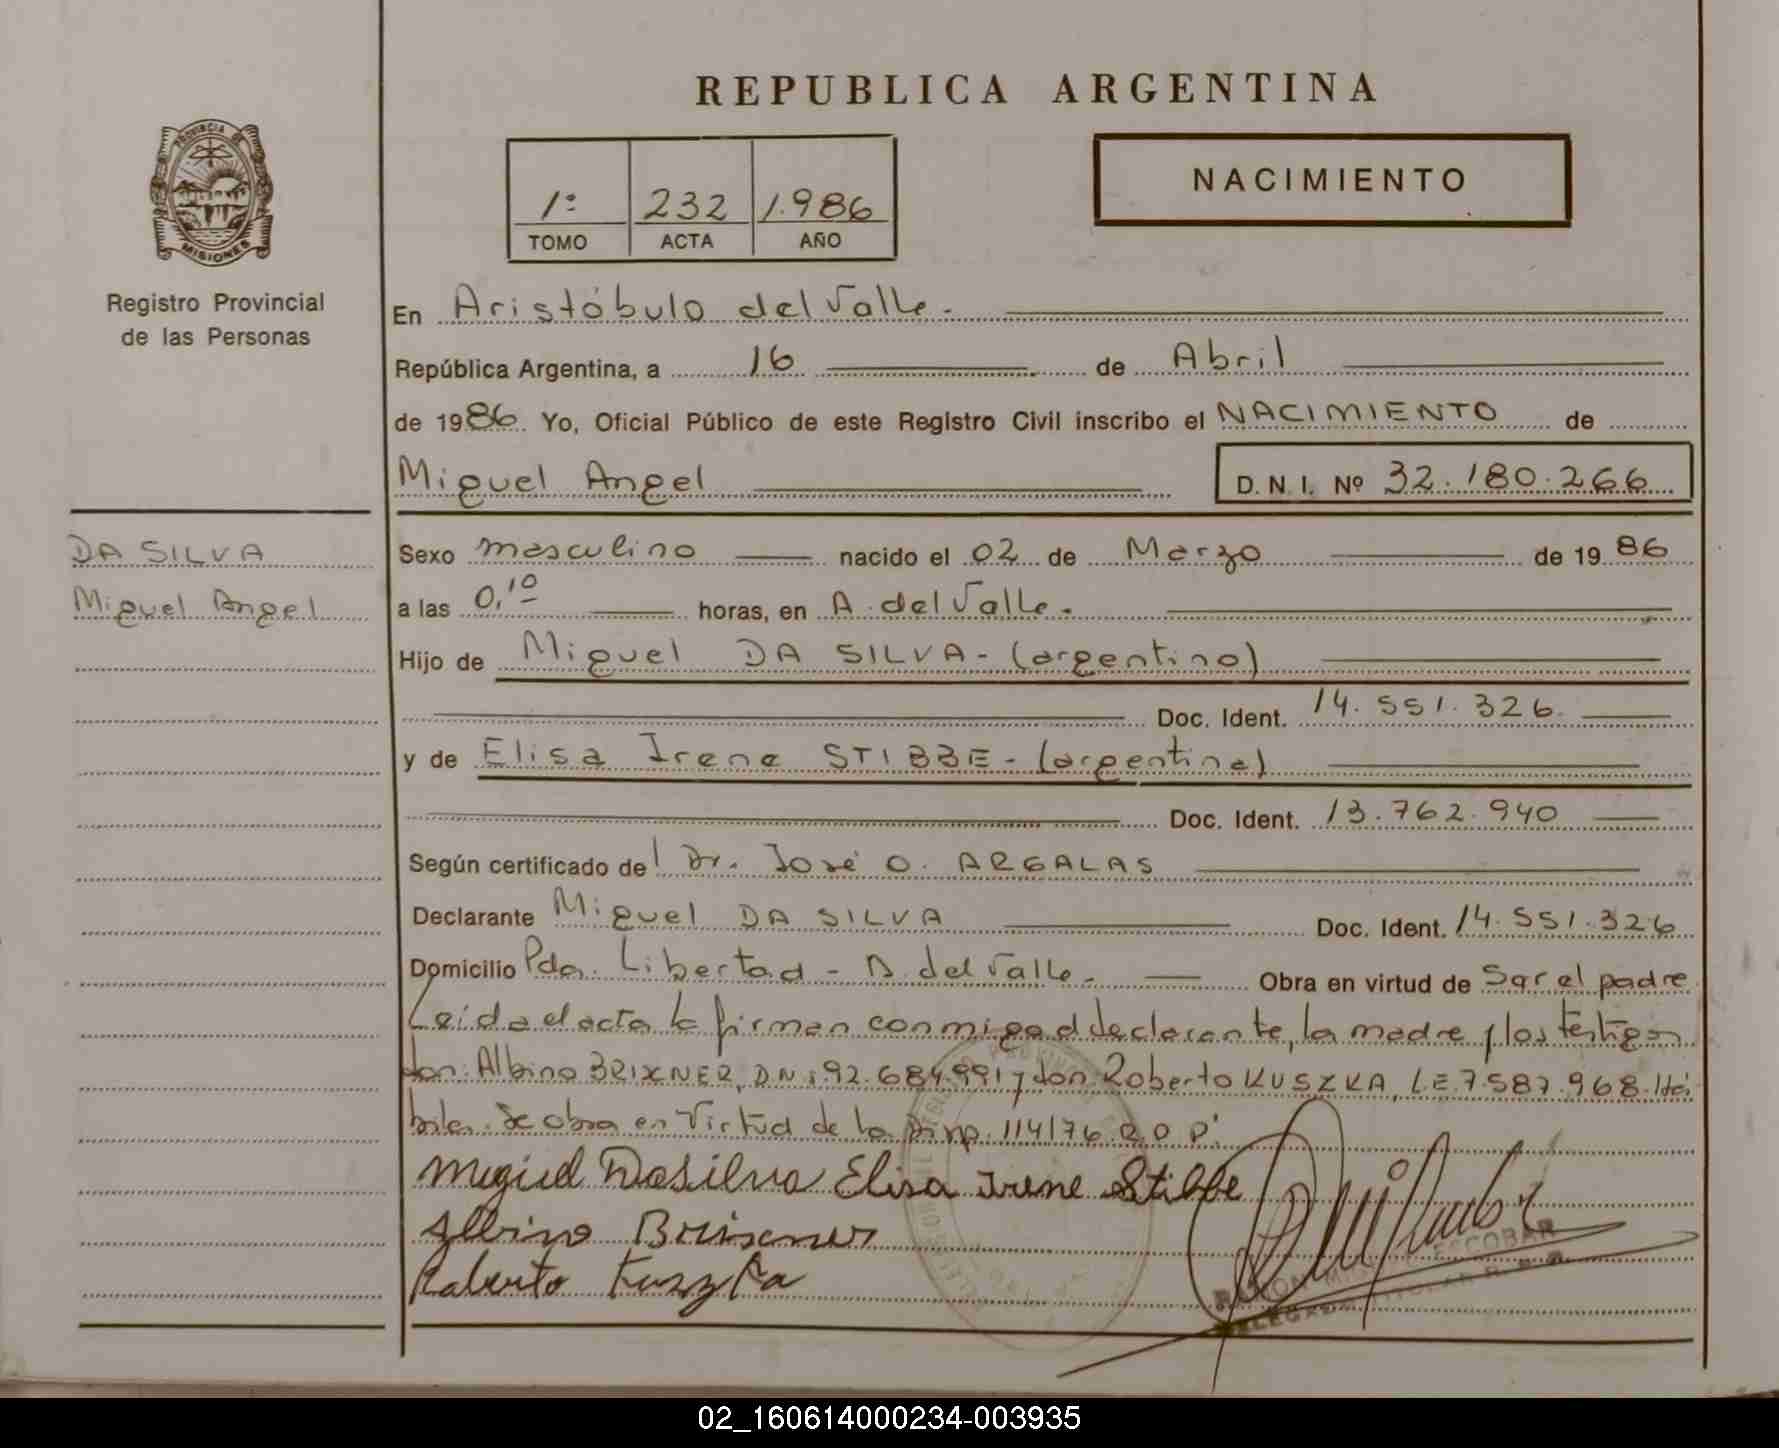 REPUBLICA ARGENTINA
PROVINCIA DE
MISIONES
Registro Provincial
de las Personas
1º 232 1.986
TOMO ACTA AÑO
NACIMIENTO
En Aristóbulo del Valle.
República Argentina, a 16 de Abril
de 1986. Yo, Oficial Público de este Registro Civil inscribo el NACIMIENTO de
Miguel Angel D. N. I. Nº 32.180.266
DA SILVA
Miguel Angel
Sexo masculino nacido el 02 de Marzo de 19 86
a las 0,10 horas, en A. del Valle.
Hijo de Miguel DA SILVA - (argentino)
Doc. Ident. 14.551.326.
y de Elisa Irene STIBBE - (argentina)
Doc. Ident. 13.762.940
Según certificado del Dr. José O. ARGALAS
Declarante Miguel DA SILVA Doc. Ident. 14.551.326
Domicilio Pda. Libertad - A. del Valle. Obra en virtud de Sar el padre
Leida el acta la firman conmigo el declarante, la madre y los testigos
don: Albino BRIXNER, DNI 92.684.991 y don Roberto KUSZKA, L.E. 7.587.968. Há
biles. Se obra en Virtud de la Disp. 114/76. R.O.P.
Miguel Dasilva Elisa Irene Stibbe
Albino Brixner
Roberto Kuszka
ESCOBAR
02_160614000234-003935